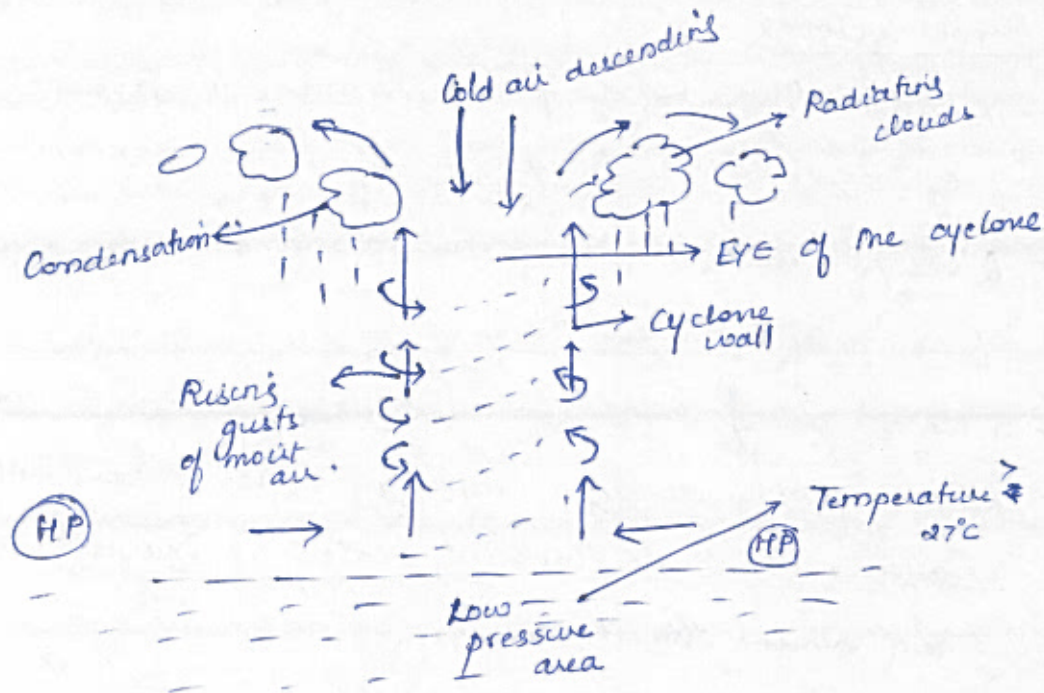 Cold air descending
Radiating
clouds
Condensation
Eye of the cyclone
Cyclone
wall
Rising
gusts
of moist
air.
HP
Temperature >
27°C
HP
Low
pressure
area